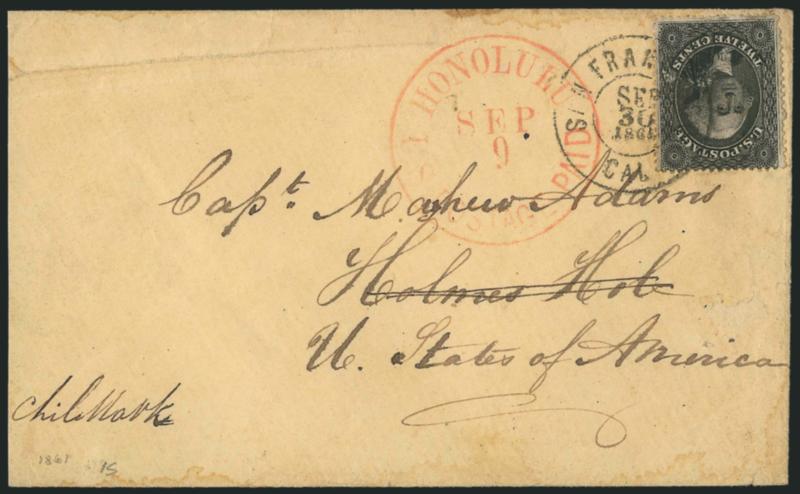 HONOLULU
SEP
9
U.S. POSTAGE PAID
SAN FRAN
SEP
30
1861
CAL
TWELVE CENTS
U.S. POSTAGE
Capt. Mathew Adams
Holmes Hole
U. States of America
Chilmark
1861